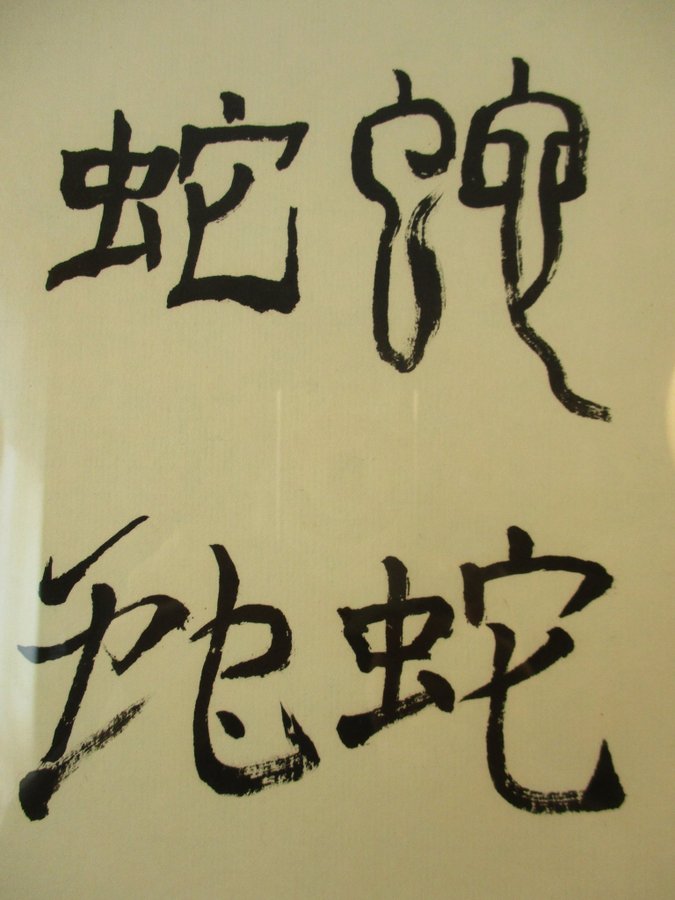 蛇 蛇
蛇 蛇